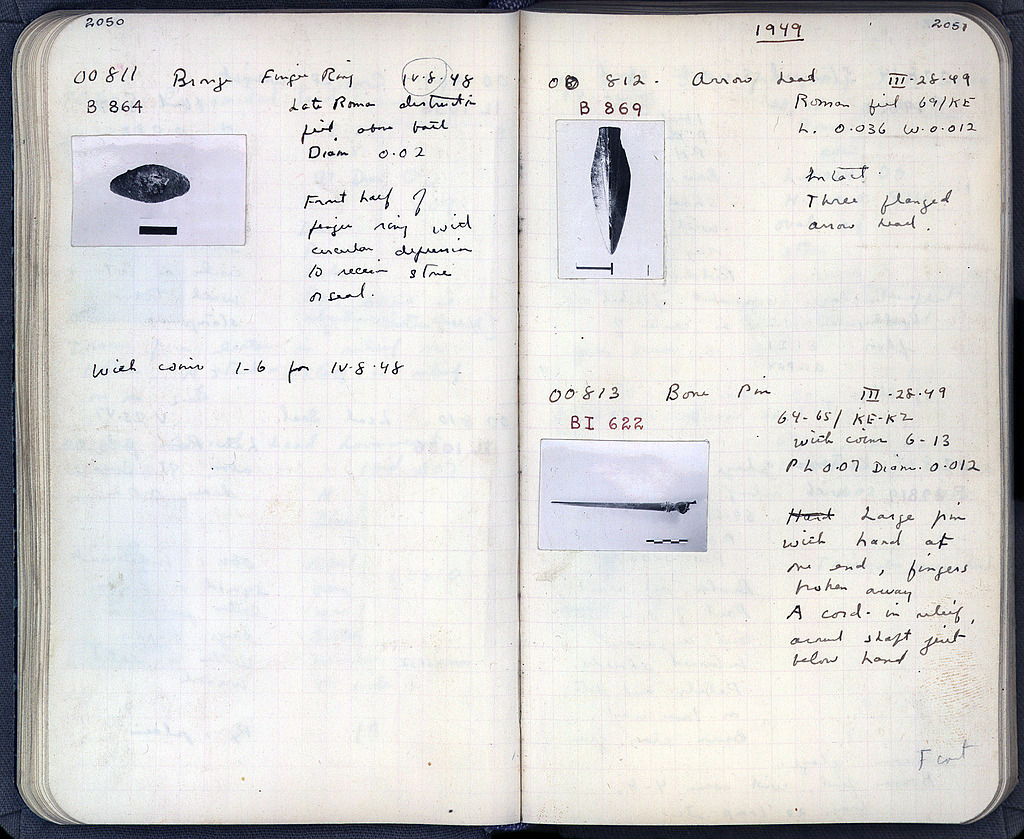 2050
OO 811 Bronze Finger Ring IV·8·48
B 864
Late Roman destruction
fill, above bath
Diam 0.02
Front half of
finger ring with
circular depression
to receive stone
or seal.
With coins 1-6 for IV·8·48
2051
1949
OO 812. Arrow head III-28-49
B 869
Roman fill 69/KE
L. 0.036 W. 0.012
Intact.
Three flanged
arrow head.
OO 813 Bone Pin III-28-49
BI 622
64-65/KE-KZ
with coins 6-13
P L 0.07 Diam. 0.012
Hand Large pin
with hand at
one end, fingers
broken away
A cord in relief,
around shaft just
below hand
F cont